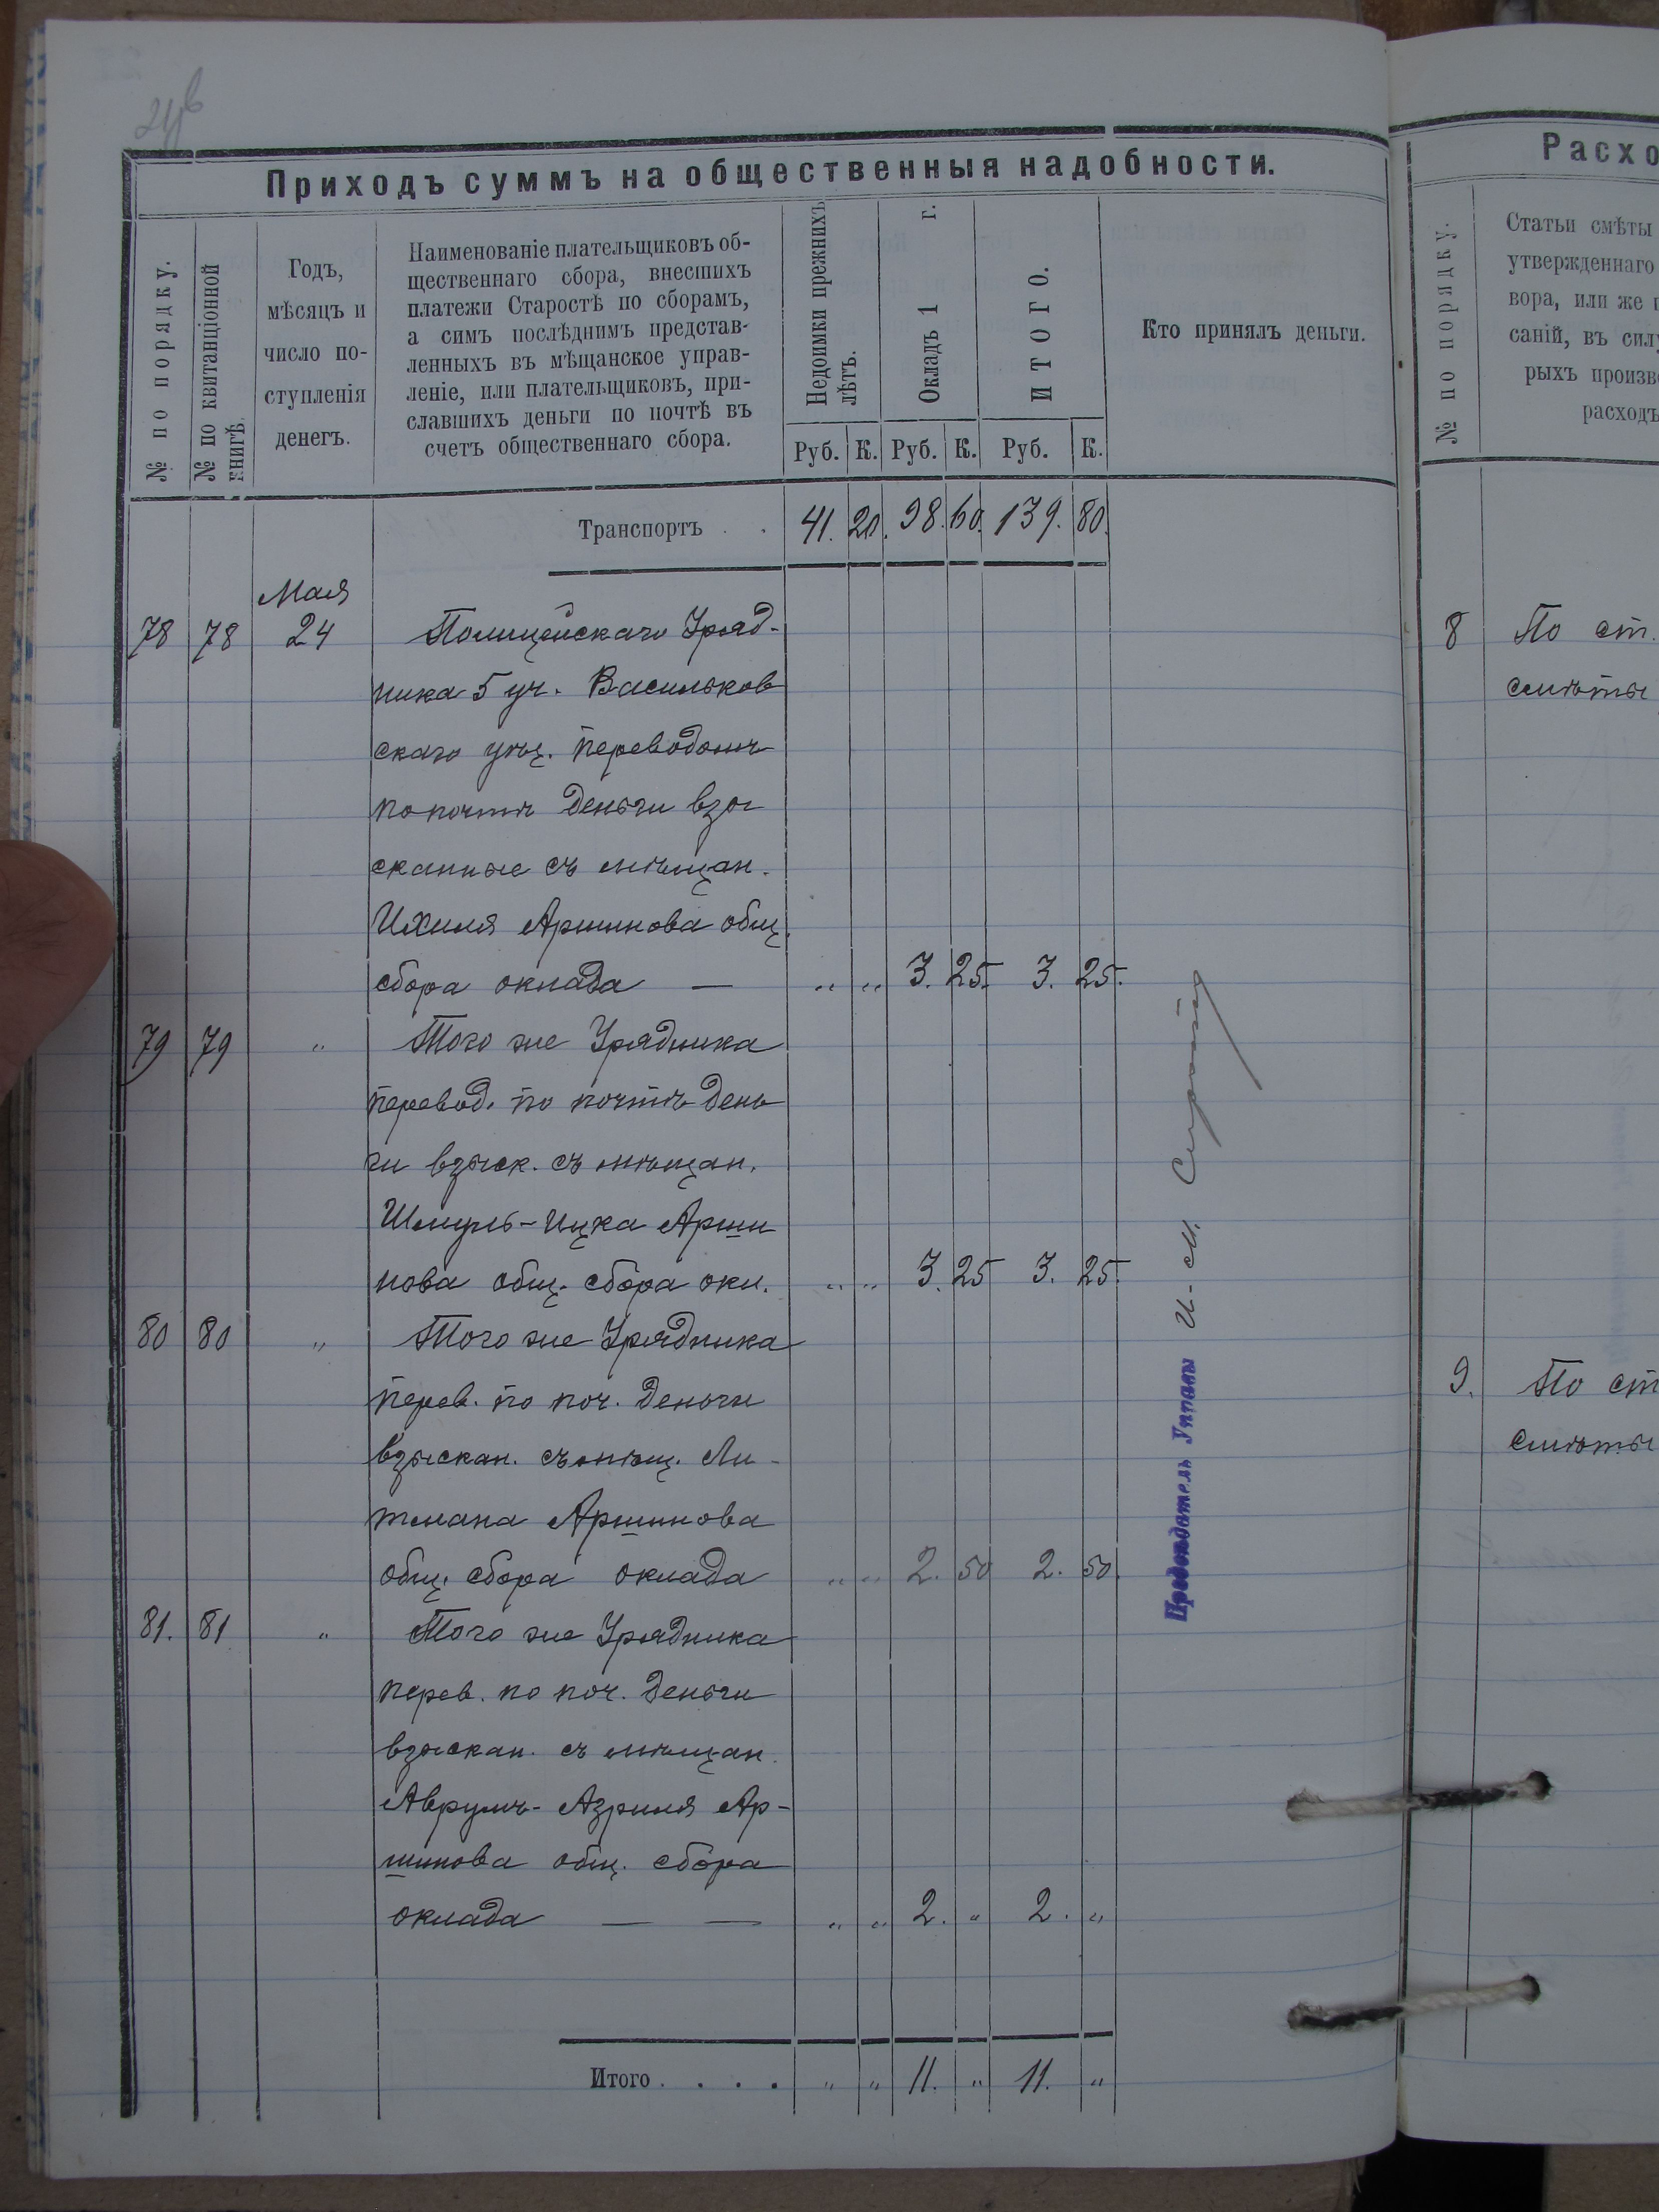 Приходъ суммъ на общественныя надобности.
№ по порядку.
№ по квитанціонной
книгѣ.
Годъ,
мѣсяцъ и
число по-
ступленія
денегъ.
Наименованіе плательщиковъ об-
щественнаго сбора, внесшихъ
платежи Старостѣ по сборамъ,
а симъ послѣднимъ представ-
ленныхъ въ мѣщанское управ-
леніе, или плательщиковъ, при-
славшихъ деньги по почтѣ въ
счетъ общественнаго сбора.
Недоимки прежнихъ
лѣтъ.
Окладъ 1 г.
ИТОГО.
Кто принялъ деньги.
Руб. К. Руб. К. Руб. К.
Транспортъ . . 41. 20. 98. 60. 139. 80.
Мая
78 78 24 Полицейскаго Уряд-
ника 5 уч. Васильков
скаго уѣз. переводомъ
по почтѣ деньги взы
сканные съ мѣщан.
Ихиля Аршинова общ.
сбора оклада — „ „ 3. 25. 3. 25.
79 79 „ Того же Урядника
перевод. по почтѣ день
ги взыск. съ мѣщан.
Шмуль-Ицка Арши
нова общ. сбора окл. „ „ 3. 25 3. 25.
80 80 „ Того же Урядника
перев. по поч. деньги
взыскан. съ мѣщ. Ли-
тмана Аршинова
общ. сбора оклада „ „ 2. 50 2. 50.
81. 81 „ Того же Урядника
перев. по поч. деньги
взыскан. съ мѣщан.
Аврумъ-Азриля Ар-
шинова общ. сбора
оклада — — „ „ 2. „ 2. „
Итого . . . . „ „ 11. „ 11. „
Предсѣдатель Управы И-М.
Расхо
№ по порядку.
Статьи смѣты
утвержденнаго
вора, или же п
саній, въ силу
рыхъ произве
расходъ
8 По ст.
смѣты
9. По ст
смѣты